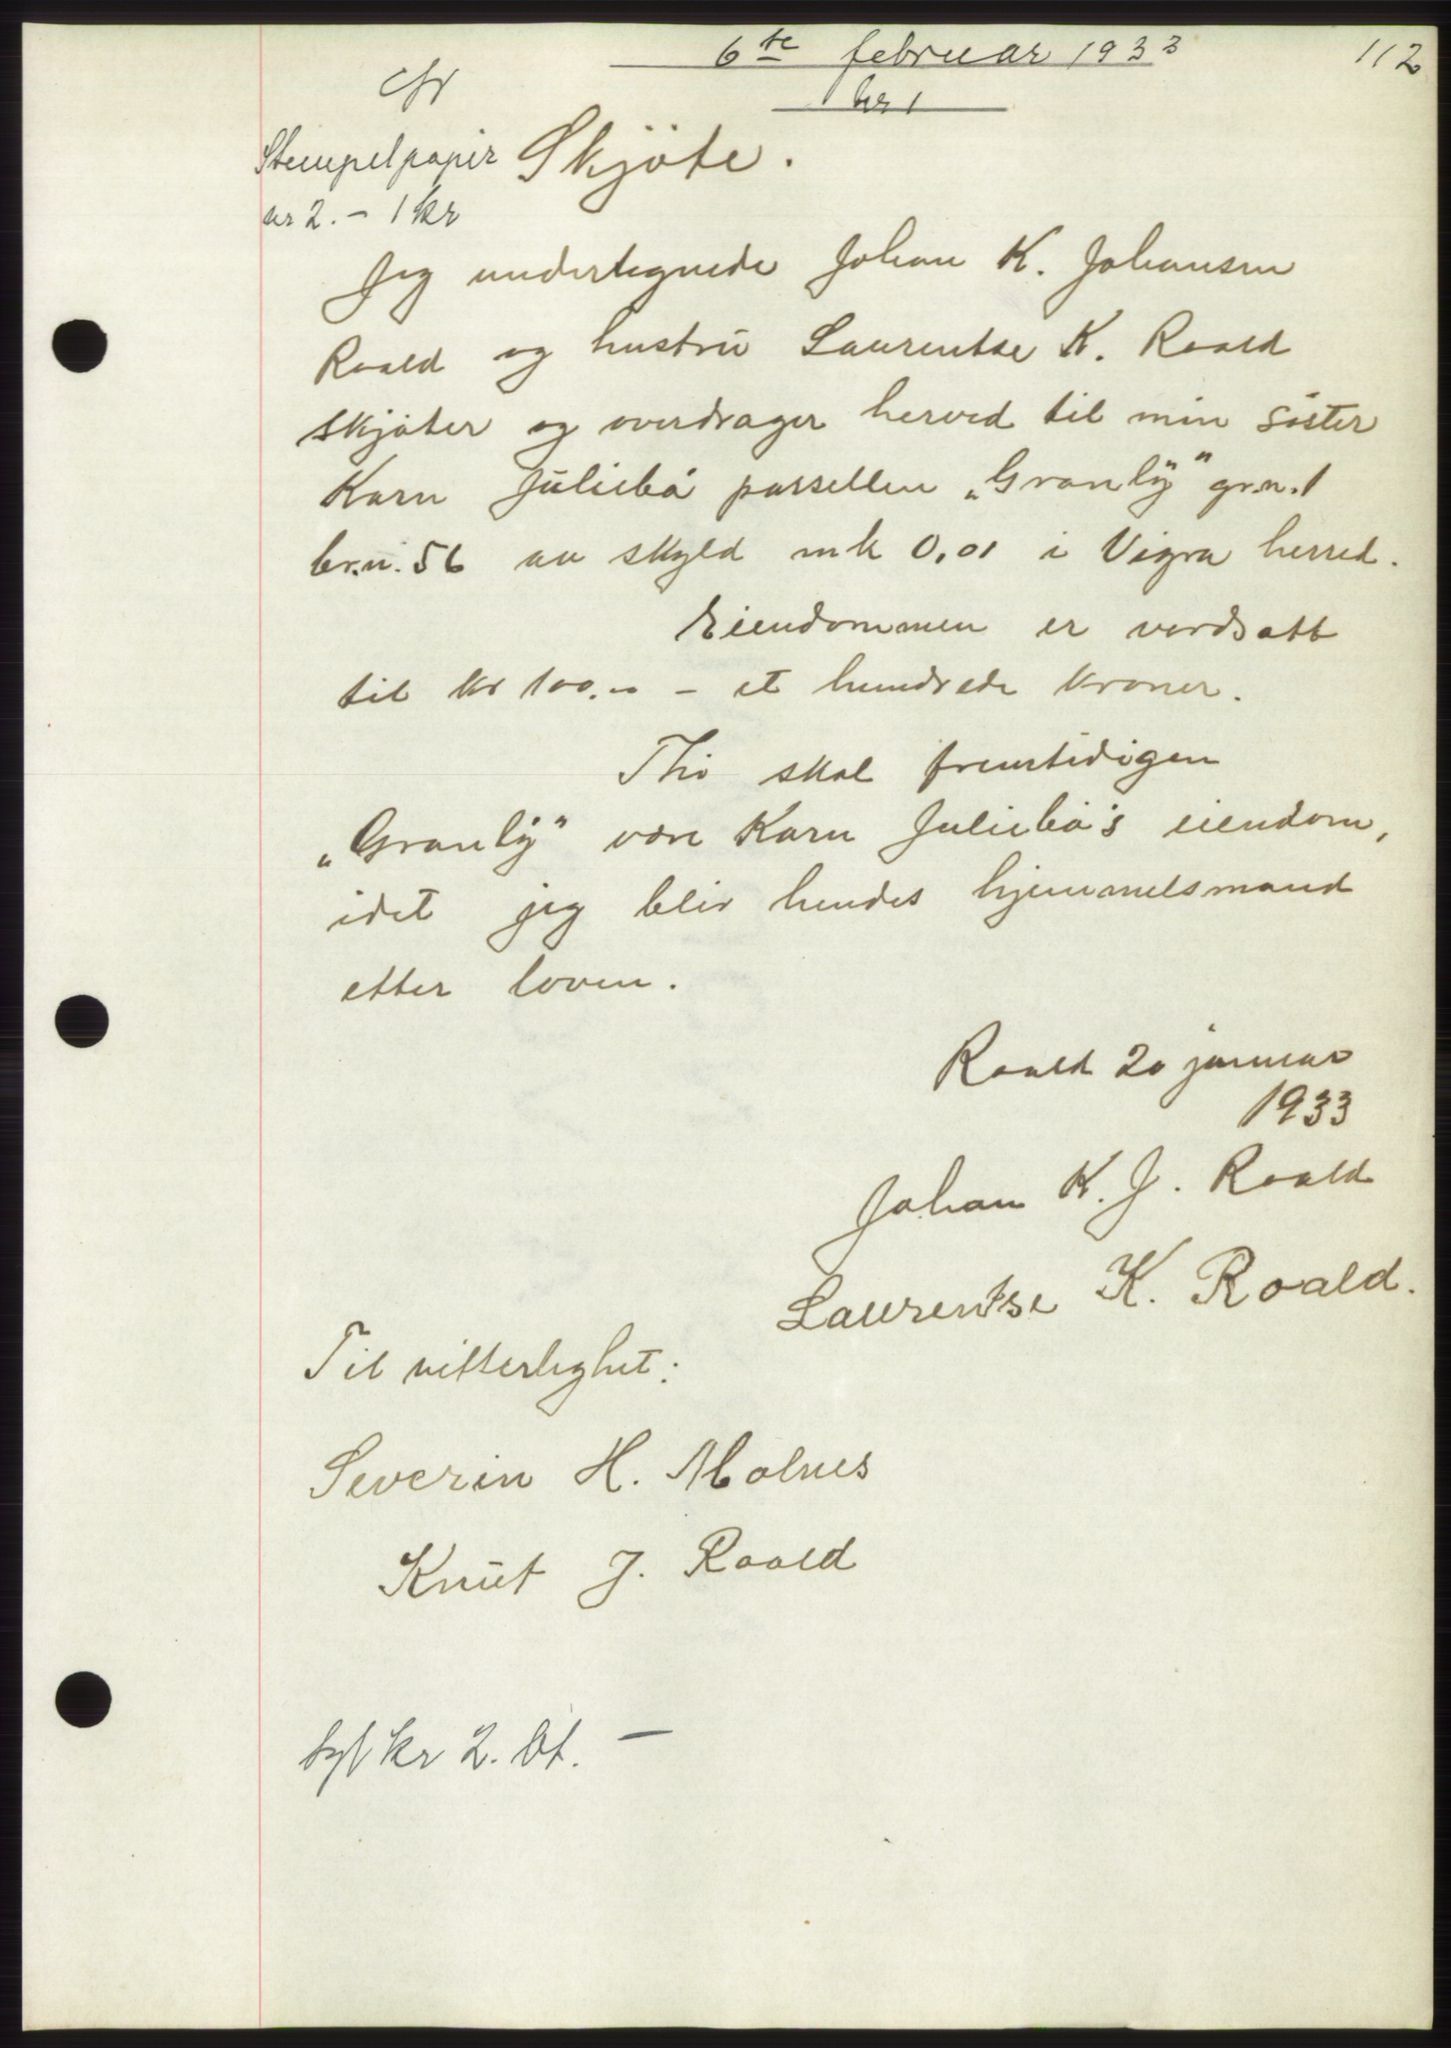 6te februar 1933
112
nr 1
Stempelpapir
nr 2. - 1 kr
Skjöte.
Jeg undertegnede Johan K. Johansen
Roald og hustru Laurentse K. Roald
skjöter og overdrager herved til min söster
Karn Juliebö parsellen „Granly" gr.n. 1
br.n. 56 av skyld mk 0,01 i Vigra herred.
Eiendommen er verdsatt
til kr 100.00 - et hundrede kroner.
Thi skal fremtidigen
„Granly" være Karn Juliebö's eiendom,
idet jeg blir hendes hjemmelsmand
etter loven.
Roald 20 januar
1933
Johan K. J. Roald
Laurentse K. Roald.
Til vitterlighet:
Severin H. Molnes
Knut J. Roald
kr 2. bt. —